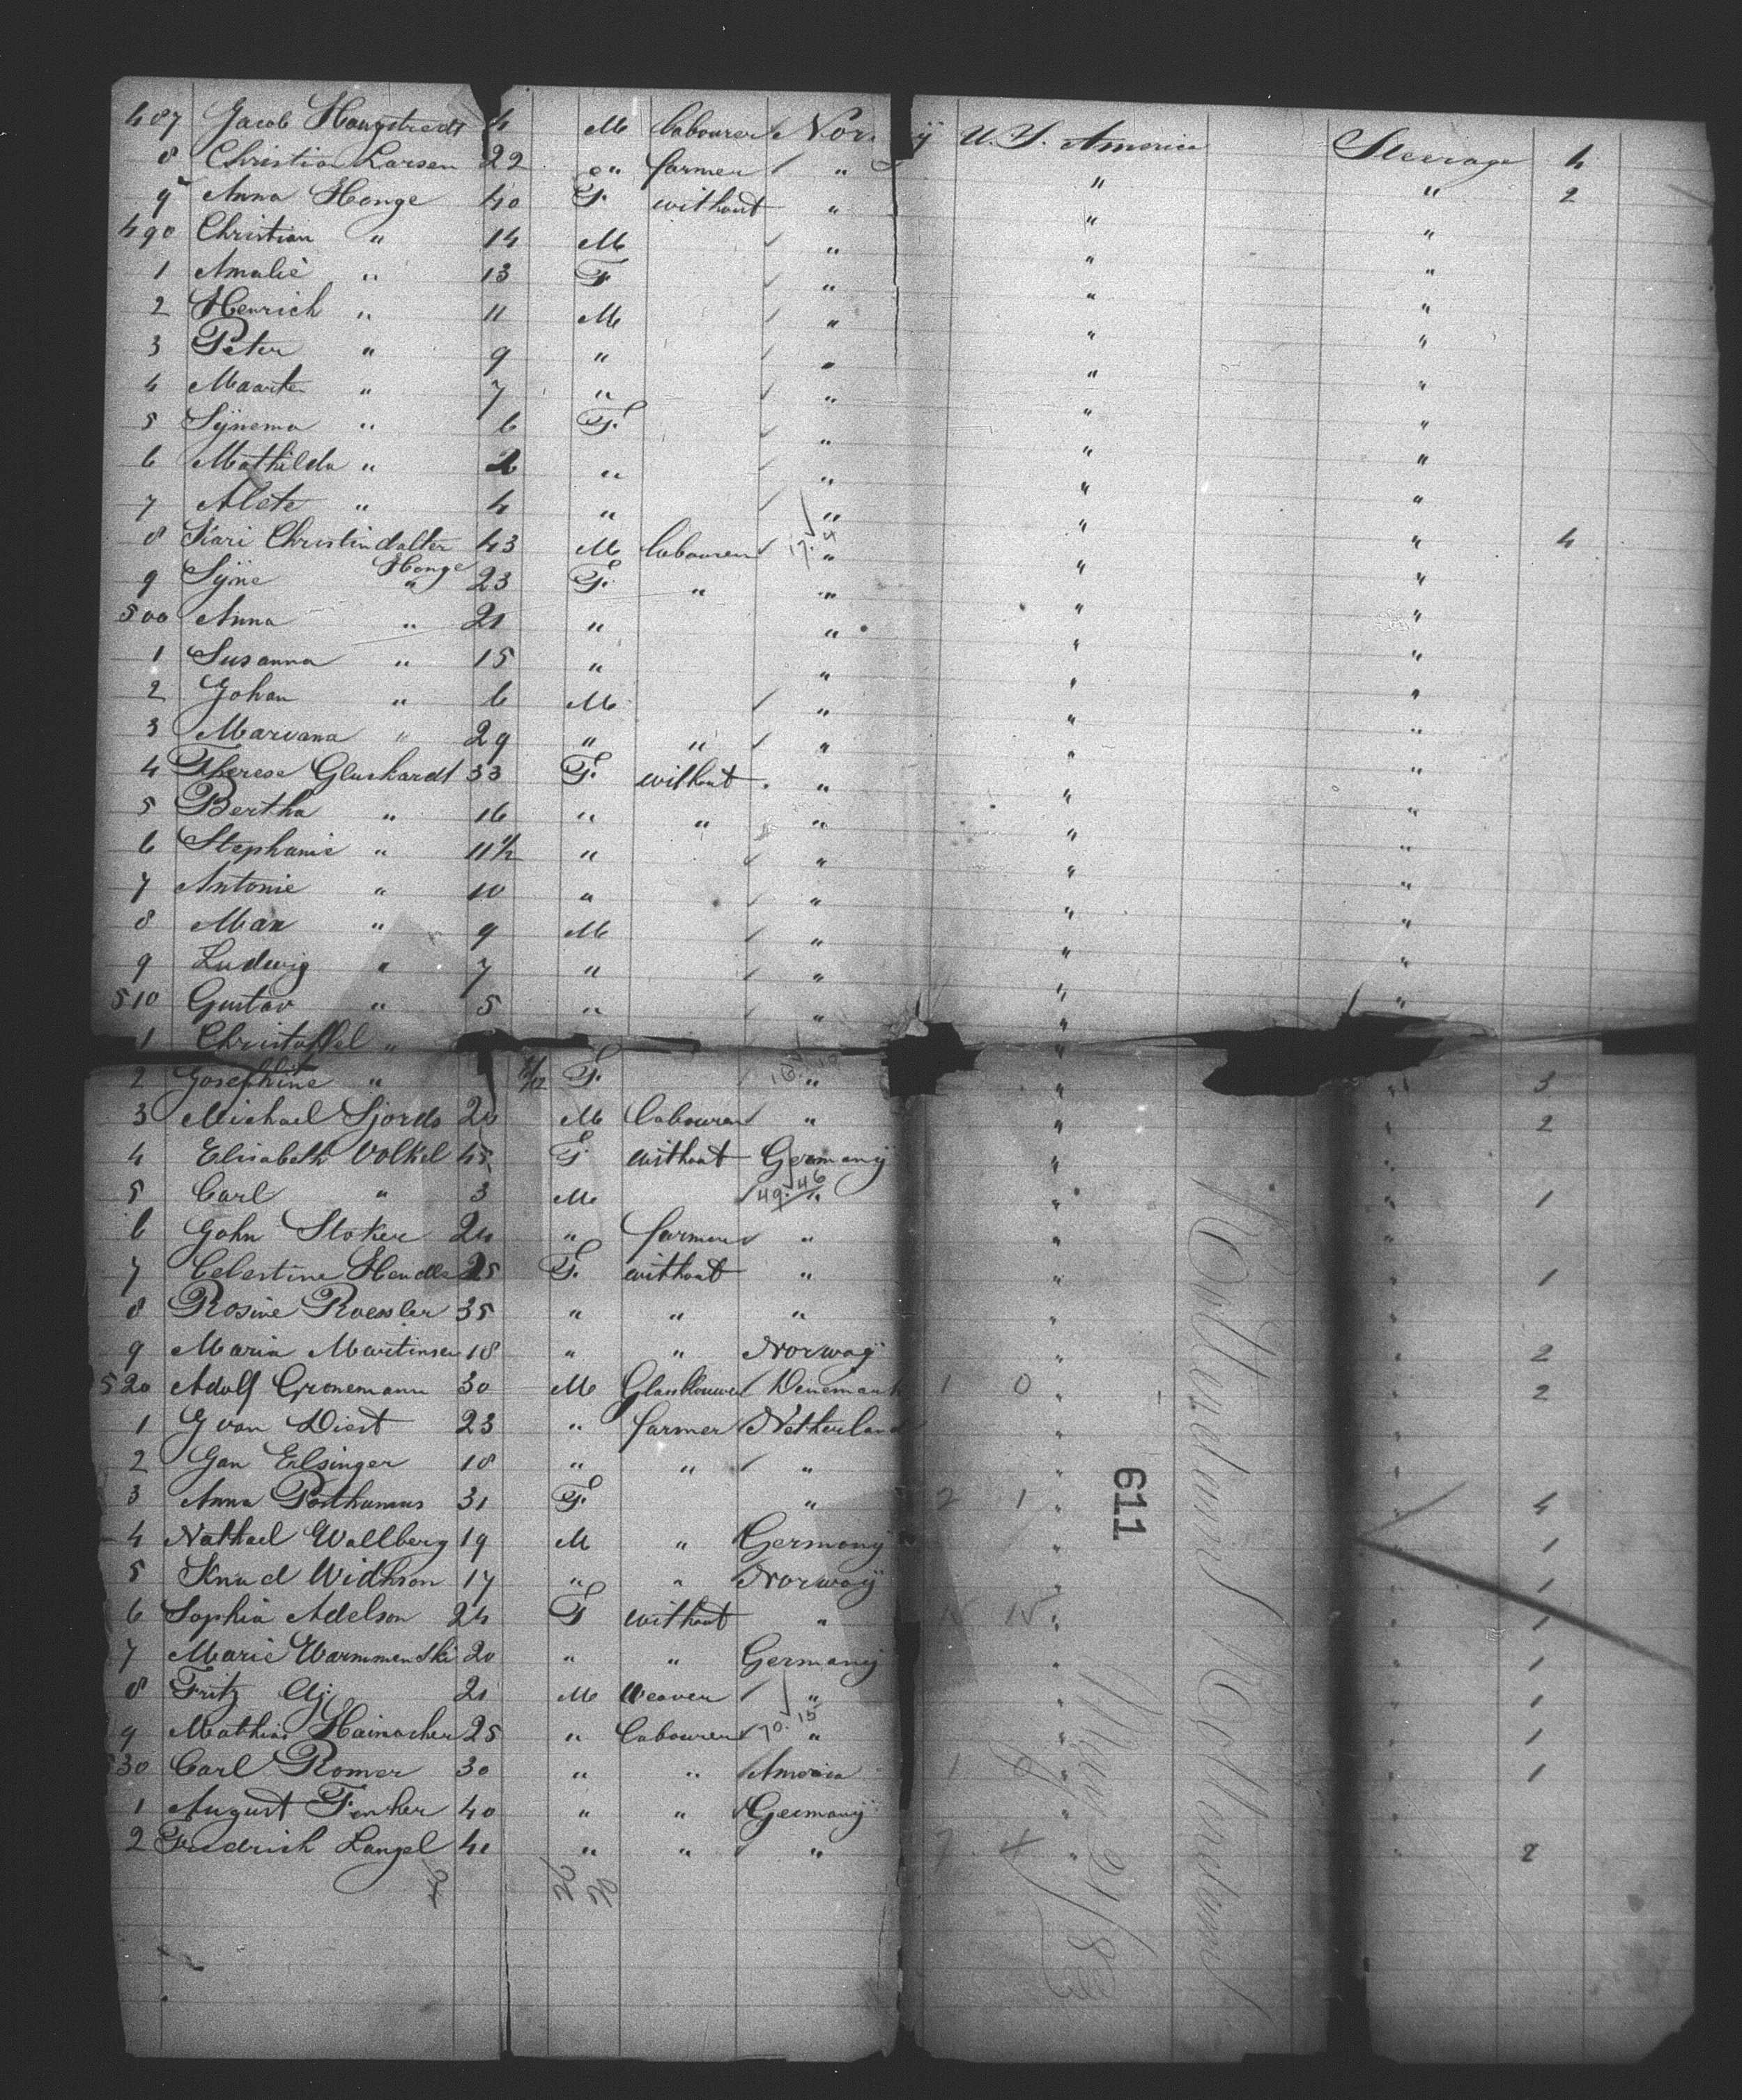 487 Jacob Haugstredt 4 M labourer Nor ÿ U. S. America Steerage 4
8 Christian Larsen 22 " farmer " " " 2
9 Anna Honge 40 F. without " " "
490 Christian " 14 M " " "
1 Amalie " 13 F " " "
2 Henrich " 11 M " " "
3 Peter " 9 " " " "
4 Maarten " 7 " " " "
5 Sÿnema " 6 F. " " "
6 Mathilda " 2 " " " "
7 Alete " 4 " " " "
8 Kari Christindatter 43 M labourer " " " 4
Honge
9 Sÿne " 23 F. " " " "
500 Anna " 21 " " " "
1 Susanna " 15 " " " "
2 Johan " 6 M " " "
3 Mariana " 29 " " " " "
4 Therese Gluskardt 33 F. without " " "
5 Bertha " 16 " " " " "
6 Stephanie " 11½ " " " "
7 Antonie " 10 " " " "
8 Max " 9 M " " "
9 Ludwig " 7 " " " "
510 Gustav " 5 " " " "
1 Christoffel " "
2 Josephine " 6/12 F. " " " 3
3 Michael Sjords 20 M labourer " " 2
4 Elisabeth Volkel 45 F. without Germanÿ " "
49. 46
5 Carl " 3 M " " " 1
6 John Stoker 24 " farmer " " "
7 Celestine 25 F. without " " " 1
8 Rosine Roessler 35 " " " " "
9 Maria Martinsen 18 " " Norwaÿ " " 2
520 Adolf Gronemann 30 M Glasblouwer Denemark 1 0 " " 2
1 J van Diest 23 " farmer Netherland " "
2 Jan Elsinger 18 " " " " "
3 Anna Posthumus 31 F. " 2 1 " " 4
611
4 Nathael Wallberg 19 M " Germanÿ " " 1
5 Knud Widhson 17 " " Norwaÿ " " 1
6 Sophia Adelson 24 F without " 15 15 " " 1
7 Marie Warmmenski 20 " " Germanÿ " " 1
8 Fritz 21 M Weaver " " " 1
70. 15
9 Mathias Hainacher 25 " labourer " " " 1
530 Carl Romer 30 " " America 1 0 " " 1
1 August Fenker 40 " " Germanÿ " "
2 Friedrich Langel 41 " " " 7 4 " " 2
Rotterdam